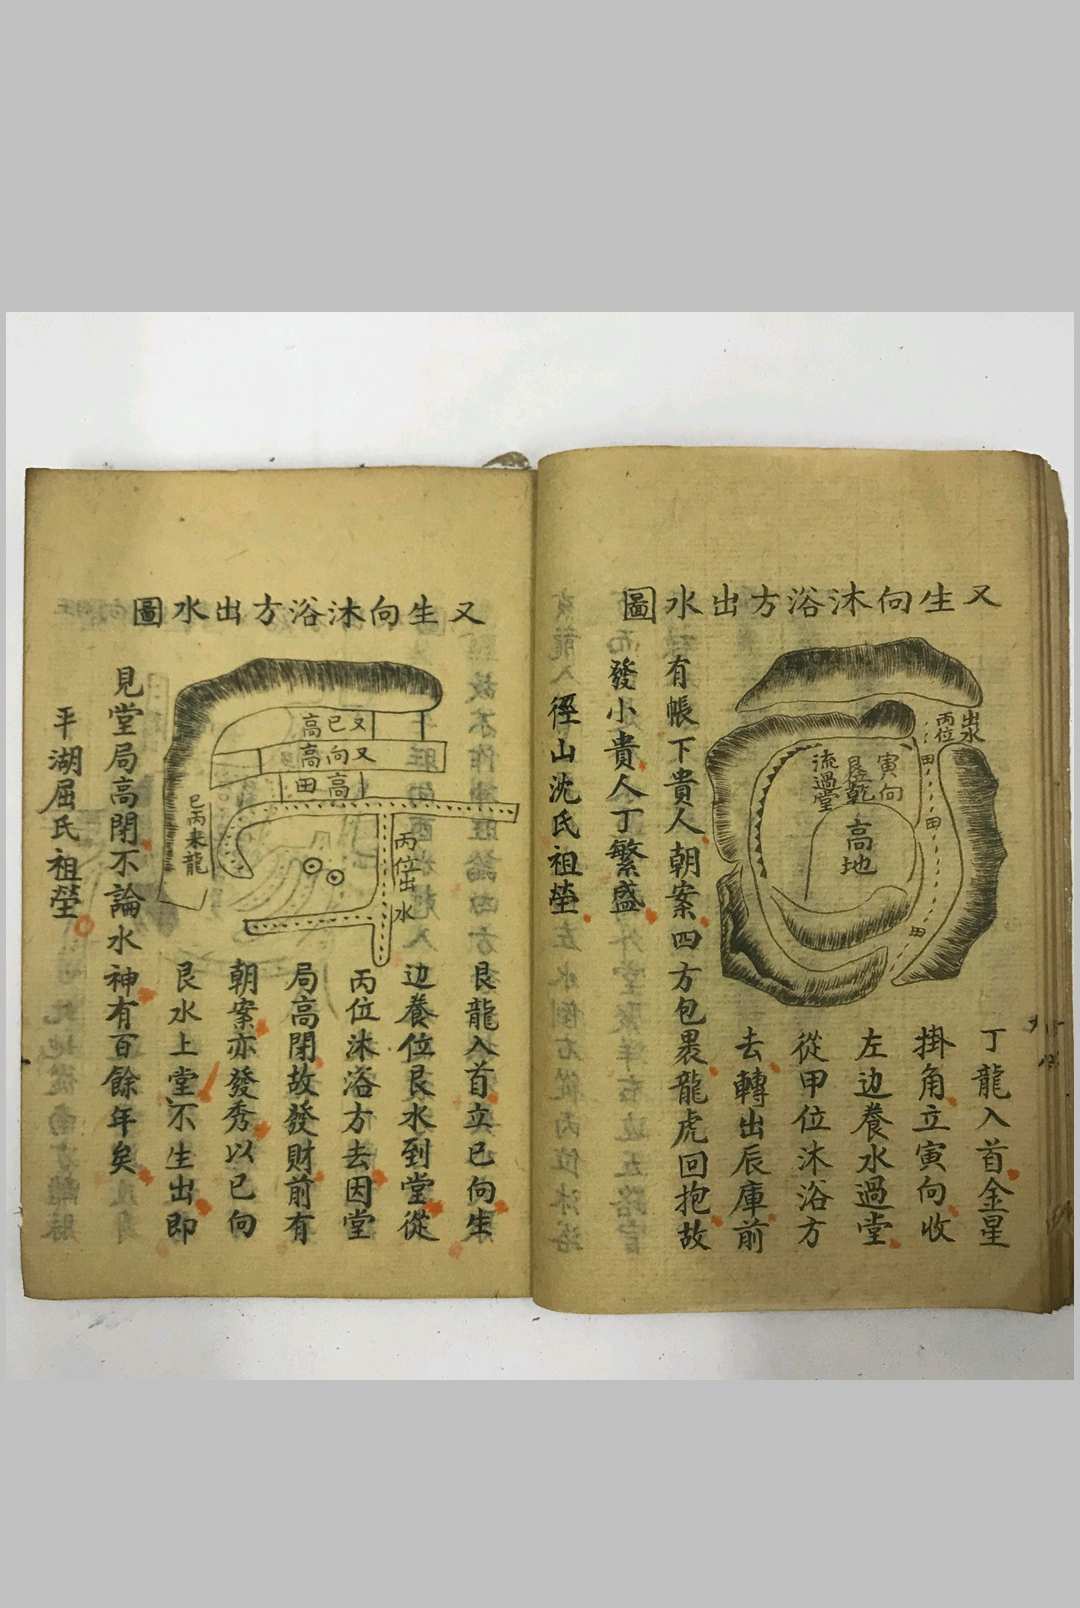 又生向沐浴方出水圖
出水
丙位
寅向
艮乾
流過堂
高地
田
田
田
丁龍入首金星
掛角立寅向收
左边養水過堂
從甲位沐浴方
去轉出辰庫前
有帳下貴人朝案四方包裹龍虎回抱故
發小貴人丁繁盛
徑山沈氏祖塋
又生向沐浴方出水圖
又巳高
又向高
高田
丙位出水
巳丙来龍
艮龍入首立巳向生
边養位艮水到堂從
丙位沐浴方去因堂
局高閉故發財前有
朝案亦發秀以巳向
艮水上堂不生出即
見堂局高閉不論水神有百餘年矣
平湖屈氏祖塋